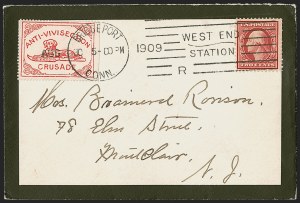 ANTI-VIVISECTION
CRUSADE
BRIDGEPORT
AUG
5-00 PM
CONN.
1909
WEST END
STATION
R
Mrs. Brainerd Ronison
78 Elm Street,
Montclair
N. J.